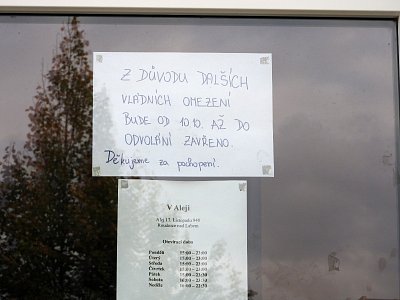 Z DŮVODU DALŠÍCH
VLÁDNÍCH OMEZENÍ
BUDE OD 10.10. AŽ DO
ODVOLÁNÍ ZAVŘENO.
Děkujeme za pochopení.
V Aleji
Alej 17. Listopadu
Roudnice nad Labem
Otevírací doba
Pondělí 15:00 – 23:00
Úterý 15:00 – 23:00
Středa 15:00 – 23:00
Čtvrtek 15:00 – 23:00
Pátek
Sobota
Neděle